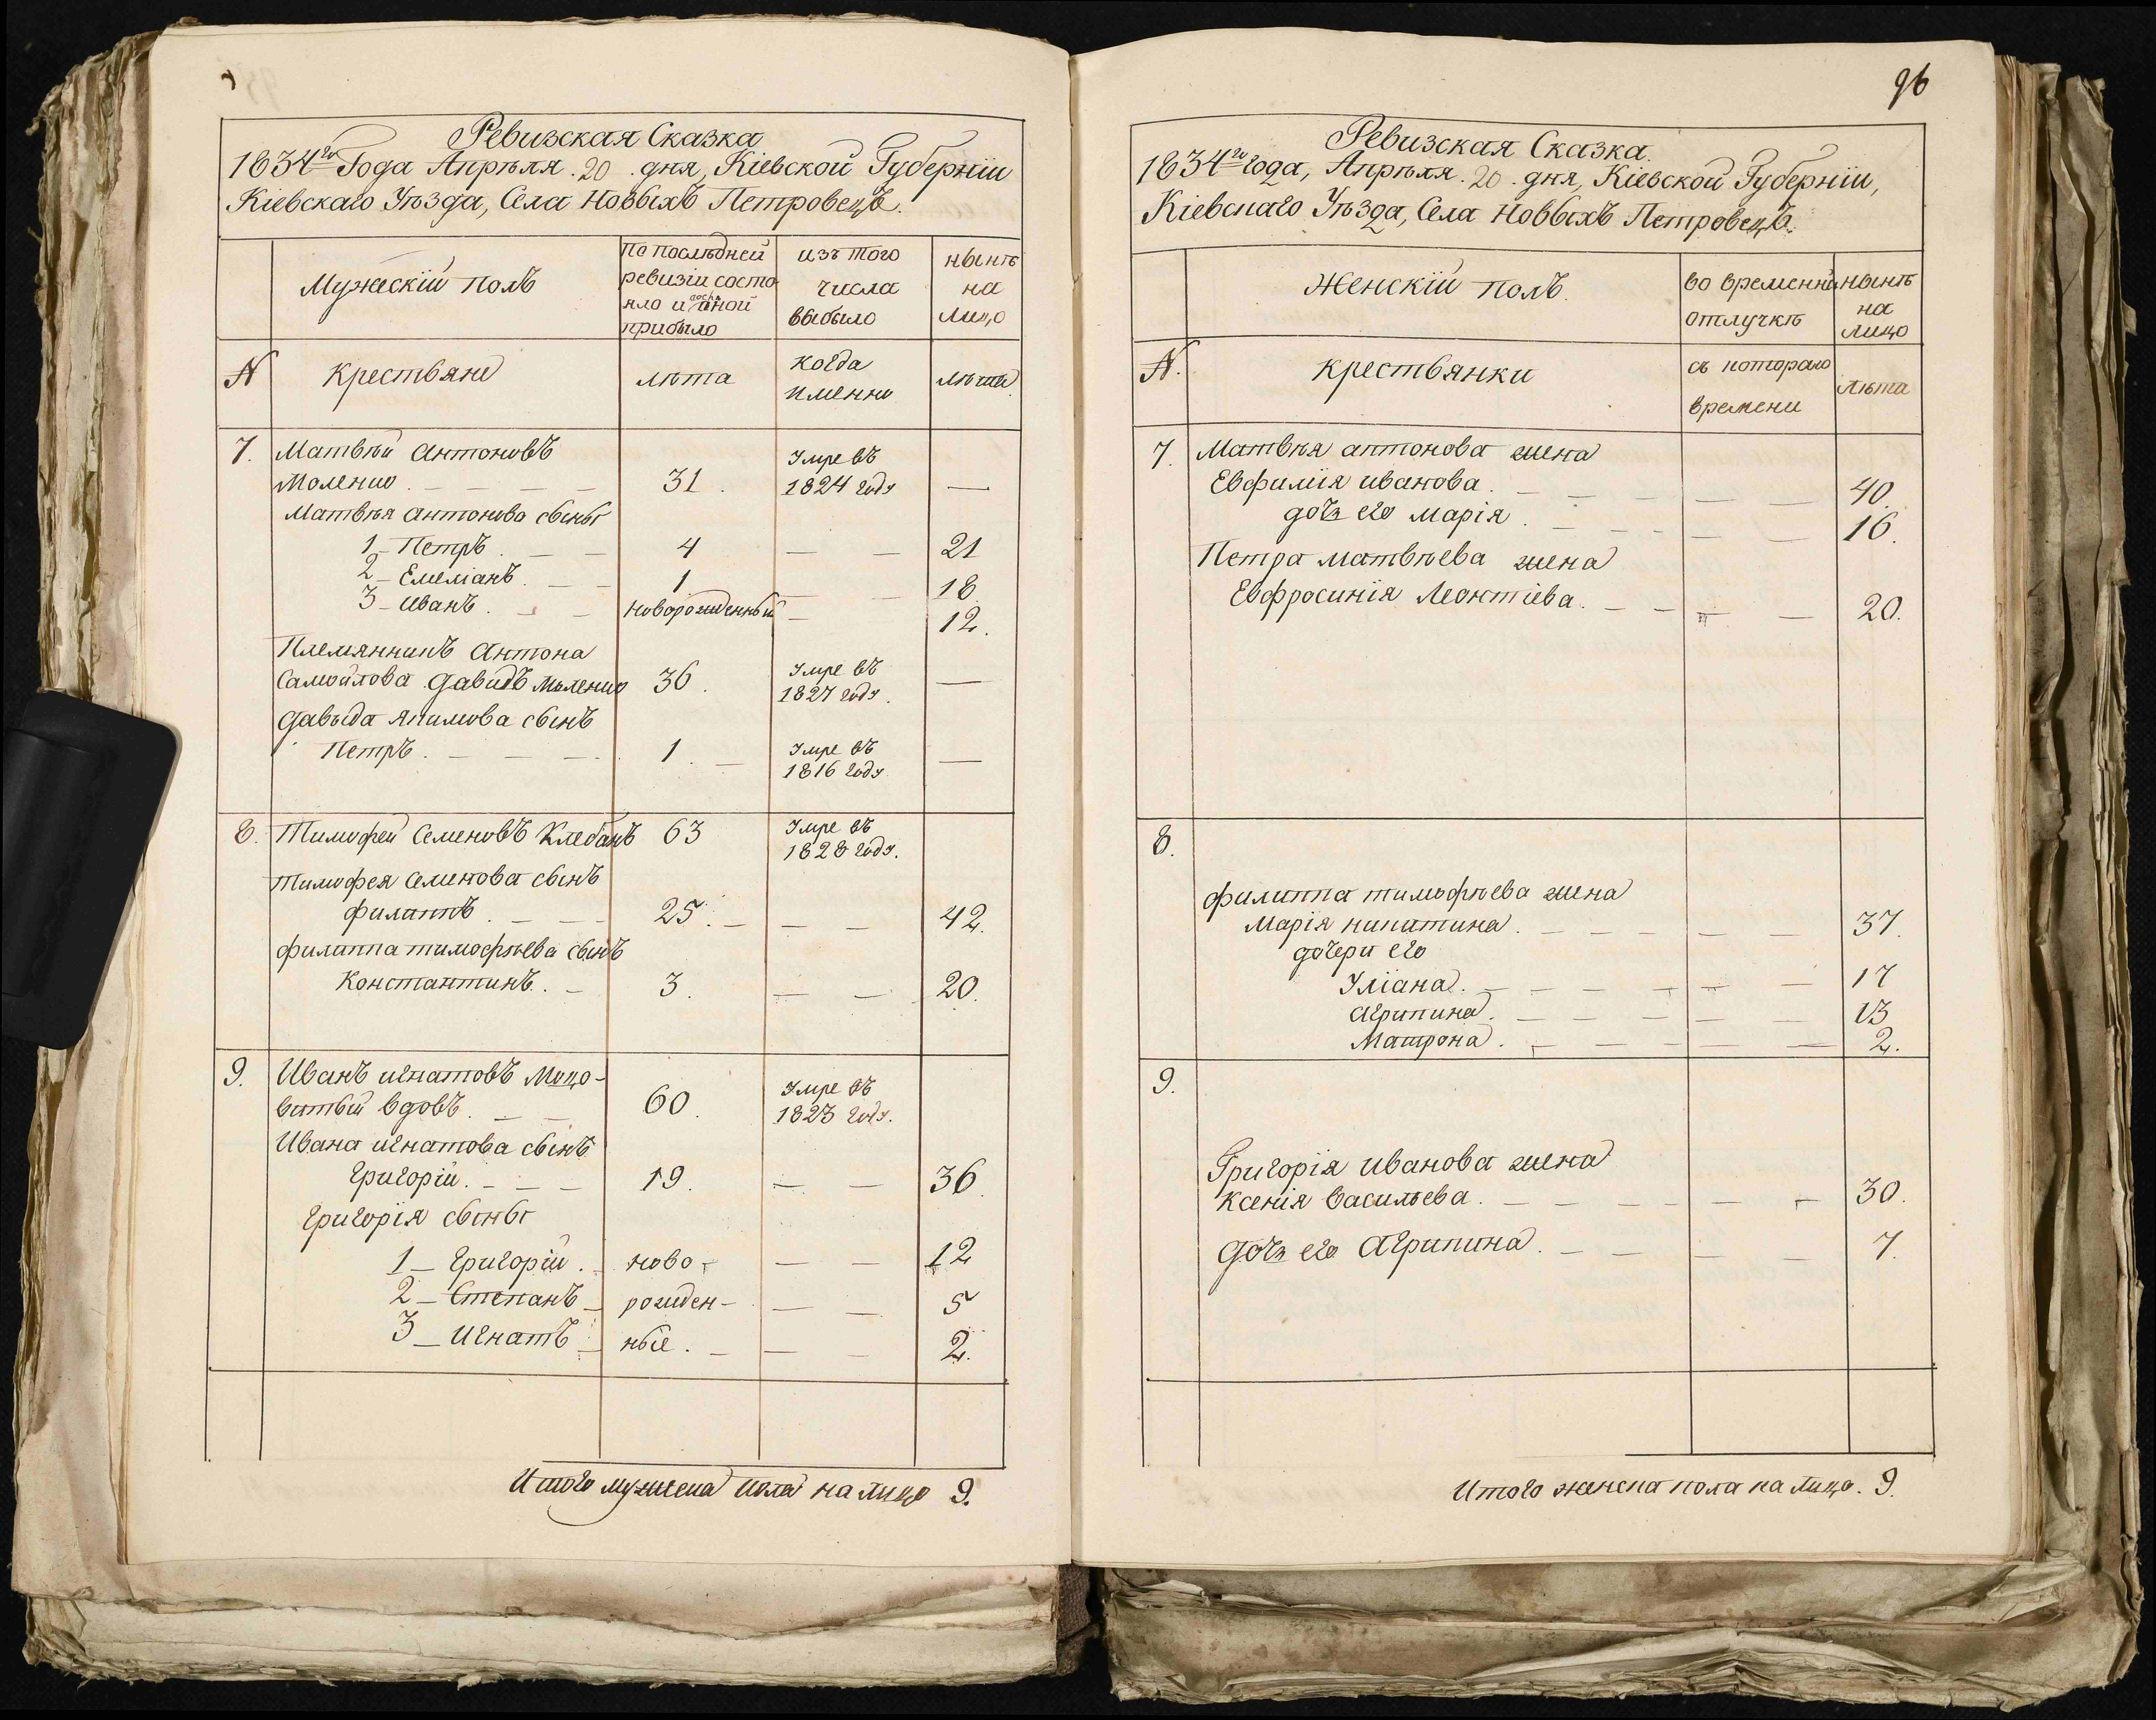 Ревизская Сказка
1834го Года Апрѣля 20 дня, Кіевской Губерніи
Кіевскаго Уѣзда, Села Новыхъ Петровецъ.
Мужескій полъ
по послѣдней
ревизіи состо
яло и послѣ оной
прибыло
изъ того
числа
выбыло
нынѣ
на
лицо
N
крестьяне
лѣта
когда
именно
лѣта
7. Матвѣй Антоновъ
Моленко 31. Умре въ 1824 году —
Матвѣя Антонова сыны
1 - Петръ. 4 — 21
2 - Емеліанъ. 1 — 18
3 - Иванъ. новорожденный — 12.
Племянникъ Антона
Самойлова Давидъ Моленко 36. Умре въ 1827 году. —
Давыда Якимова сынъ
Петръ. 1. Умре въ 1816 году. —
8. Тимофей Семеновъ Клебанъ 63 Умре въ 1828 году.
Тимофея Семенова сынъ
Филиппъ. 25. — 42.
Филиппа Тимофѣева сынъ
Константинъ. 3. — 20.
9. Иванъ Игнатовъ Моцо-
витый вдовъ. 60. Умре въ 1823 году.
Ивана Игнатова сынъ
Григорій. 19. — 36.
Григорія сыны
1 - Григорій. ново- — 12
2 - Степанъ рожден- — 5
3 - Игнатъ ные. — 2.
Итого мужеска пола на лицо 9.
96
Ревизская Сказка.
1834го года, Апрѣля 20 дня, Кіевской Губерніи,
Кіевскаго Уѣзда, Села Новыхъ Петровецъ.
Женскій полъ.
во временной
отлучкѣ
нынѣ
на
лицо
N.
крестьянки
съ котораго
времени
лѣта
7. Матвѣя Антонова жена
Евфимія Иванова. — 40.
дочь его Марія. — 16.
Петра Матвѣева жена
Евфросинія Леонтіева. — 20.
8.
Филиппа Тимофѣева жена
Марія Никитина. — 37.
дочери его
Уліана. — 17
Агрипина. — 13
Матрона. — 2.
9.
Григорія Иванова жена
Ксенія Васильева. — 30.
Дочь его Агрипина. — 7.
Итого женска пола на лицо. 9.